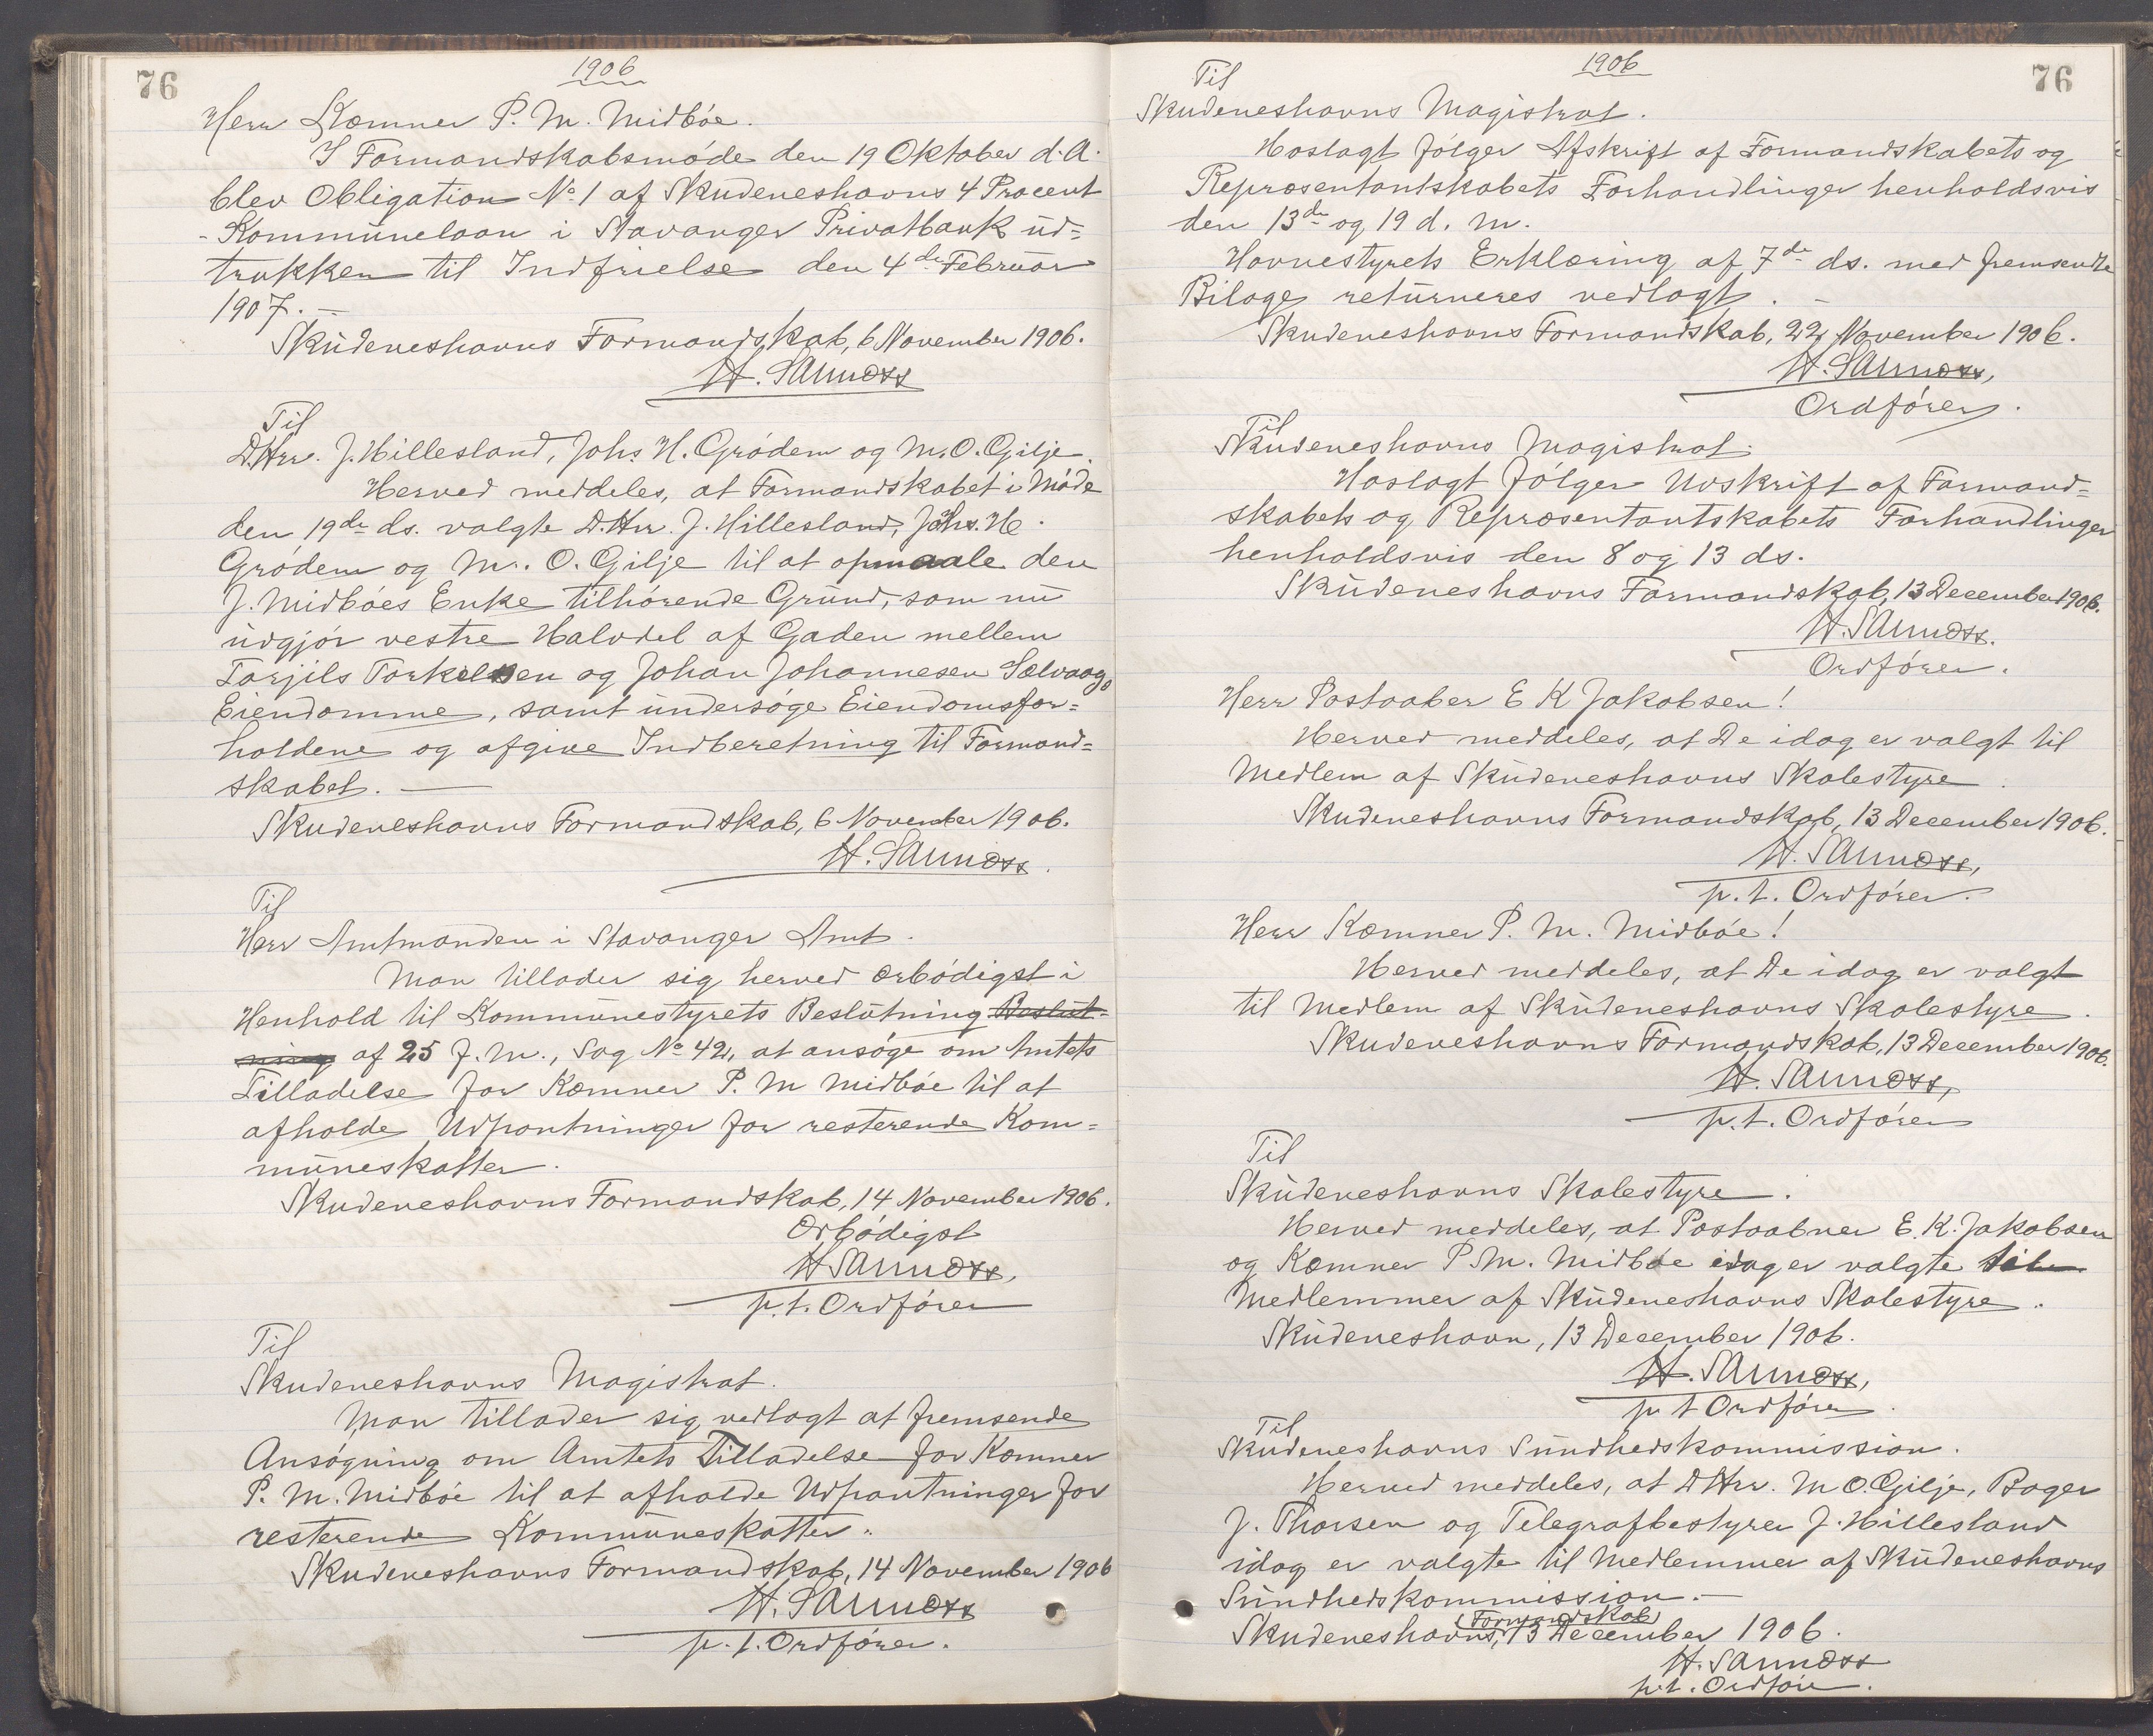 76
1906
Herr Kæmner P. M. Midbøe.
I Formandskabsmøde den 19 Oktober d.A.
blev Obligation No 1 af Skudeneshavns 4 Procent
- Kommunelaan i Stavanger Privatbank ud=
trukken til Indfrielse den 4de Februar
1907. —
Skudeneshavns Formandskab, 6 November 1906.
Til
D.Hrr. J. Hillesland, Johs. H. Grødem og M. O. Gilje.
Herved meddeles, at Formandskabet i Møde
den 19de ds. valgte D.Hrr. J. Hillesland, Johs. H.
Grødem og M. O. Gilje til at opmaale den
J. Midbøes Enke tilhørende Grund, som nu
udgjør vestre Halvdel af Gaden mellem
Torjils Torkelsen og Johan Johannesen Sælvaags
Eiendomme, samt undersøge Eiendomsfor=
holdene og afgive Indberetning til Formand=
skabet. —
Skudeneshavns Formandskab, 6 November 1906.
Til
Herr Amtmanden i Stavanger Amt.
Man tillader sig herved ærbødigst i
Henhold til Kommunestyrets Beslutning Beslut=
ning af 25 f.M., Sag No 42, at ansøge om Amtets
Tilladelse for Kæmner P. M Midbøe til at
afholde Udpantninger for resterende Kom=
muneskatter.
Skudeneshavns Formandskab, 14 November 1906.
Ærbødigst
p.t. Ordfører
Til
Skudeneshavns Magistrat.
Man tillader sig vedlagt at fremsende
Ansøgning om Amtets Tilladelse for Kæmner
P. M. Midbøe til at afholde Udpantninger for
resterende Kommuneskatter.
Skudeneshavns Formandskab, 14 November 1906
p.t. Ordfører.
1906
76
Til
Skudeneshavns Magistrat.
Hoslagt følger Afskrift af Formandskabets og
Repræsentantskabets Forhandlinger henholdsvis
den 13de og 19 d. M.
Havnestyrets Erklæring af 7de ds. med fremsendte
Bilage returneres vedlagt. —
Skudeneshavns Formandskab, 22 November 1906.
Ordfører.
Til
Skudeneshavns Magistrat.
Hoslagt følger Udskrift af Formand=
skabets og Repræsentantskabets Forhandlinger
henholdsvis den 8 og 13 ds.
Skudeneshavns Formandskab, 13 December 1906.
Ordfører.
Herr Postaaber E K Jakobsen!
Herved meddeles, at De idag er valgt til
Medlem af Skudeneshavns Skolestyre.
Skudeneshavns Formandskab, 13 December 1906.
p.t. Ordfører.
Herr Kæmner P. M. Midbøe!
Herved meddeles, at De idag er valgt
til Medlem af Skudeneshavns Skolestyre.
Skudeneshavns Formandskab, 13 December 1906.
p.t. Ordfører
Til
Skudeneshavns Skolestyre.
Herved meddeles, at Postaabner E. K. Jakobsen
og Kæmner P. M. Midbøe idag er valgte til
Medlemmer af Skudeneshavns Skolestyre.
Skudeneshavn, 13 December 1906.
p t Ordfører.
Til
Skudeneshavns Sundhedskommission.
Herved meddeles, at D Hrr. M O. Gilje, Bager
J. Thorsen og Telegrafbestyrer J. Hillesland
idag er valgte til Medlemmer af Skudeneshavns
Sundhedskommission. —
(Formandskab)
Skudeneshavns, 13 December 1906.
p.t. Ordfører.